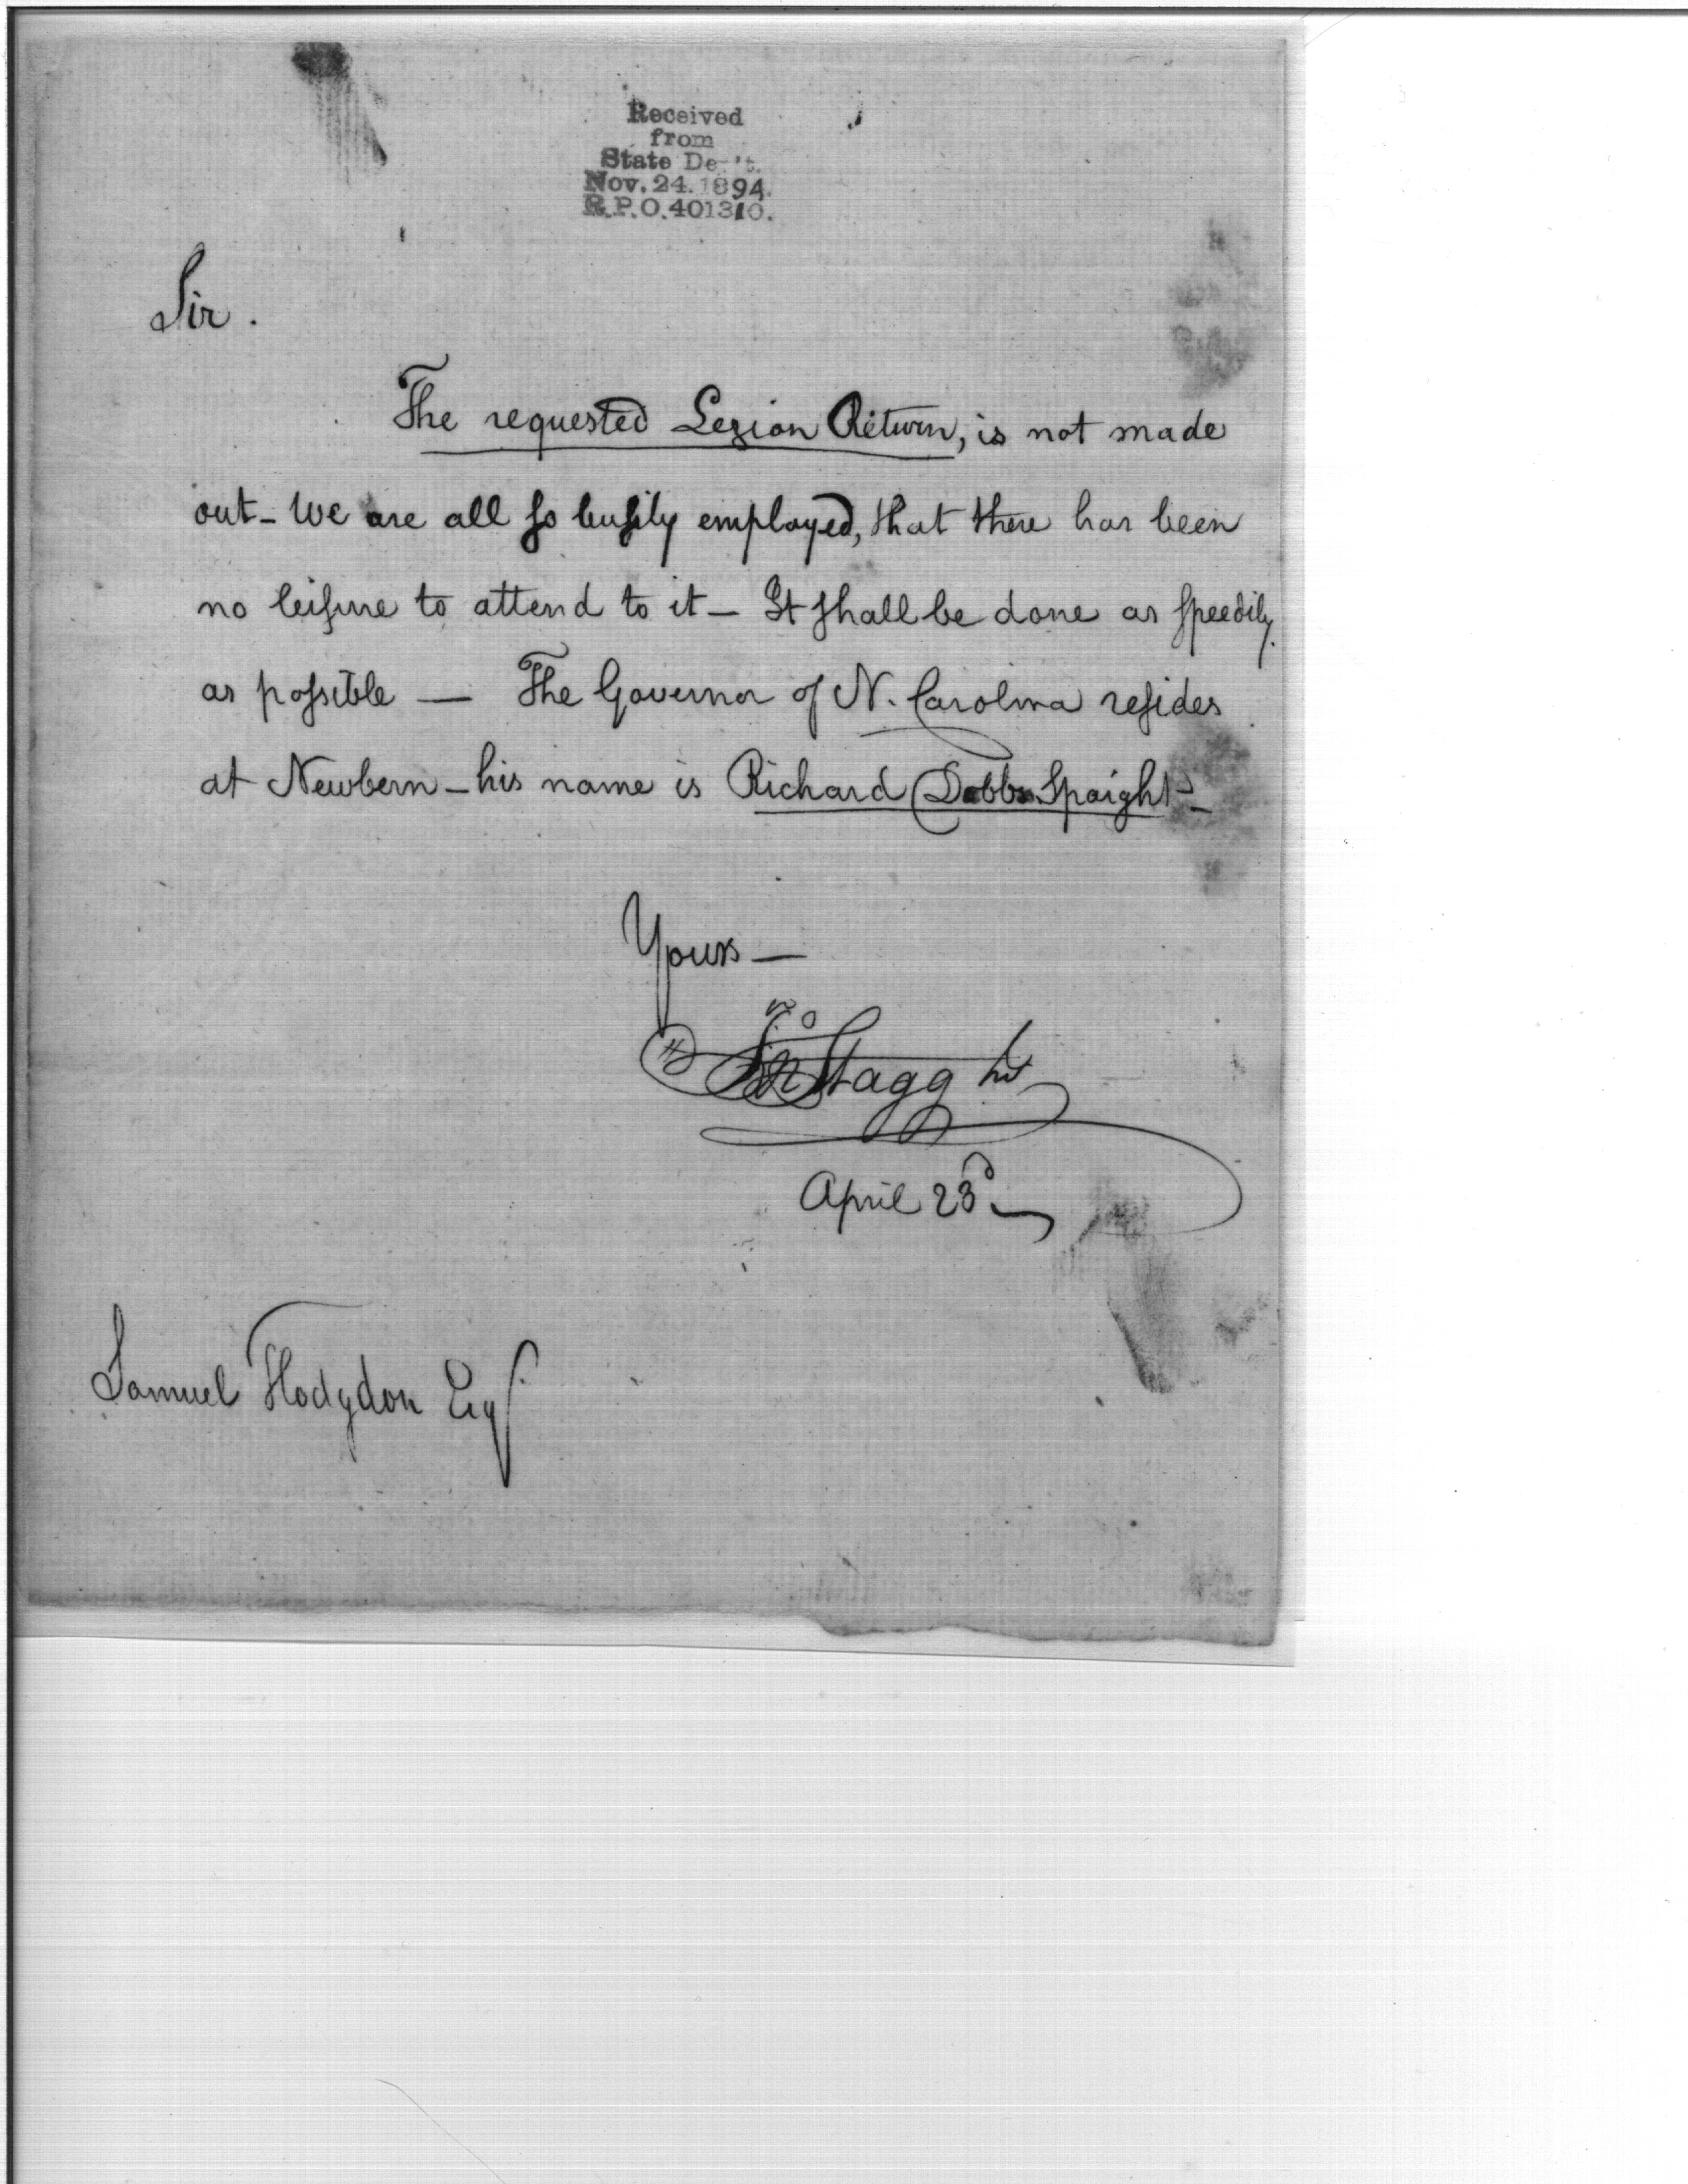 Received
from
State De 't.
Nov. 24. 1894.
R.P.O. 401310.
Sir.
The requested Legion Return, is not made
out - We are all so busily employed, that there has been
no leisure to attend to it - It shall be done as speedily
as possible — The Governor of N. Carolina resides
at Newbern - his name is Richard Dobbs Spaight -
Yours —
Jno Stagg
April 23d
Samuel Hodgdon Esqr